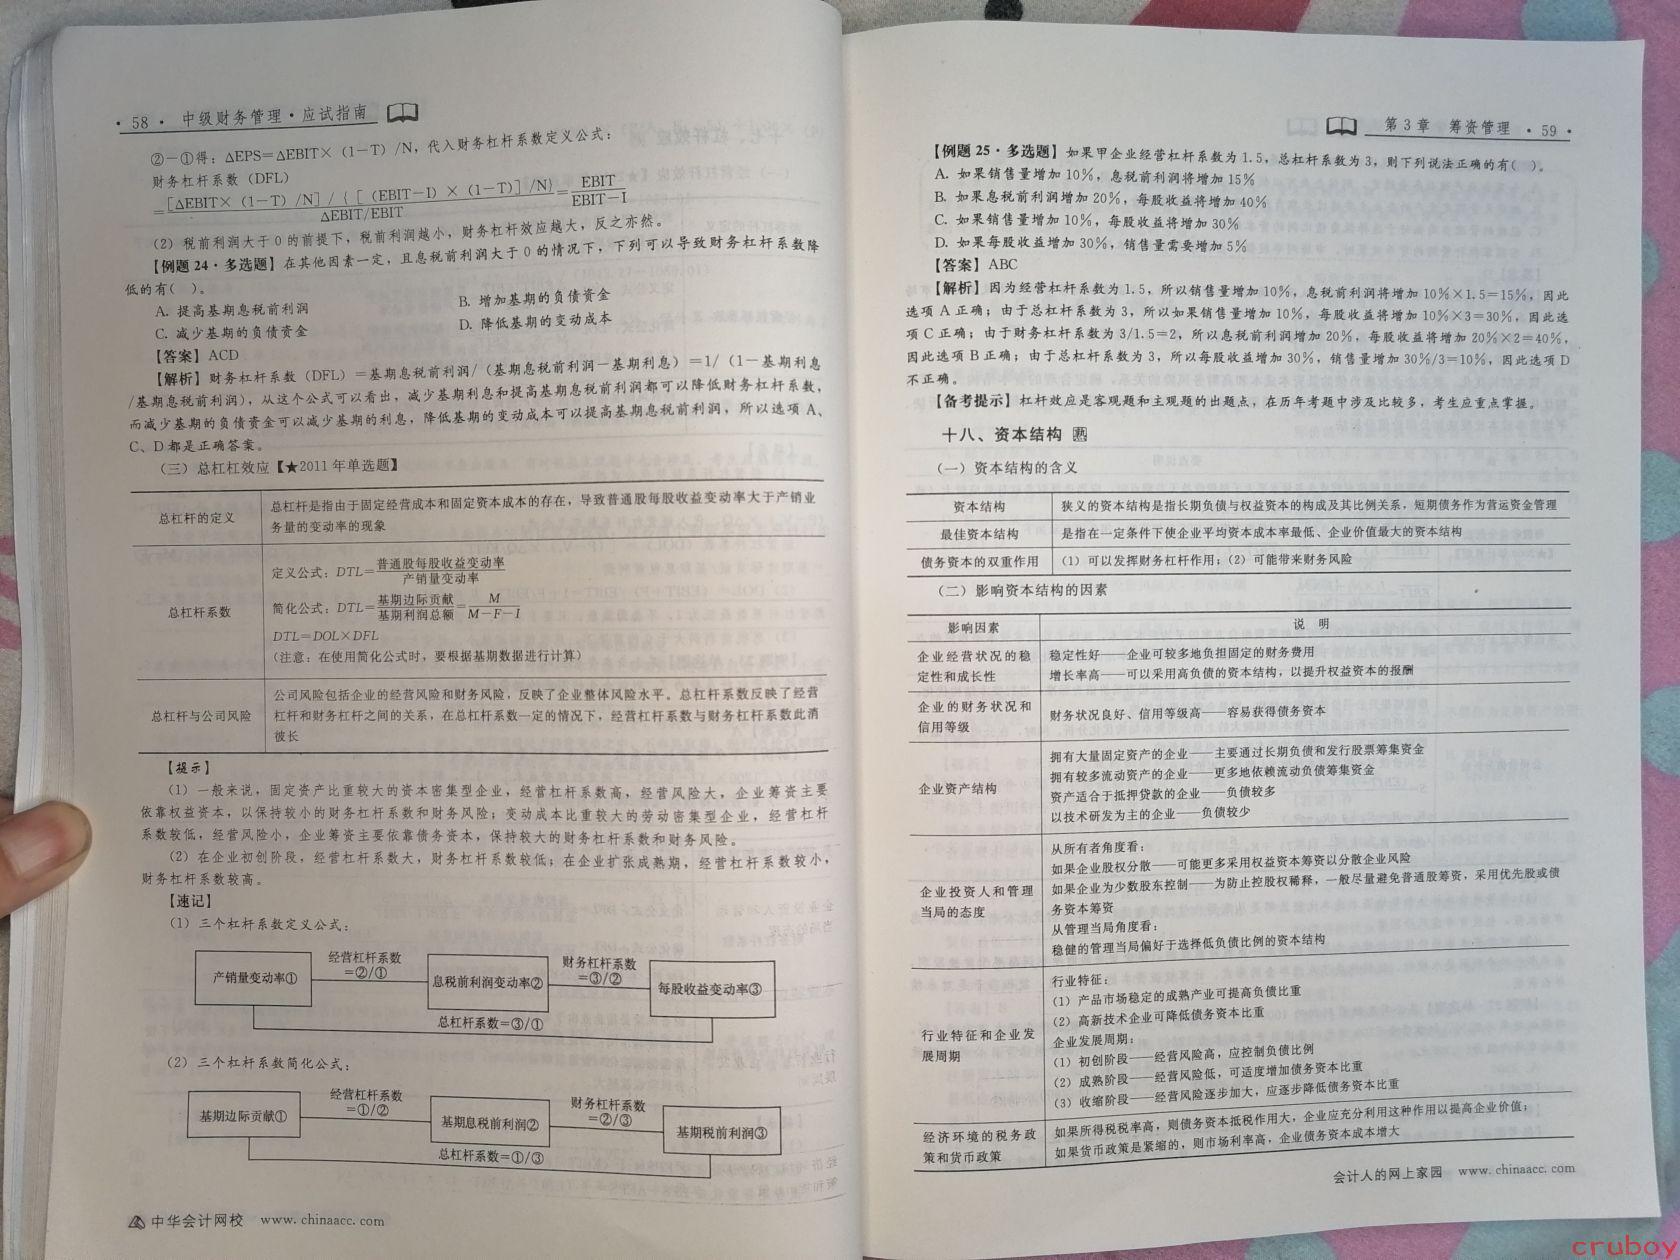 · 58 · 中级财务管理·应试指南
②－①得：ΔEPS=ΔEBIT×（1－T）/N，代入财务杠杆系数定义公式：
财务杠杆系数（DFL）
=[ΔEBIT×（1－T）/N]/{[（EBIT－I）×（1－T）]/N} = EBIT
ΔEBIT/EBIT EBIT－I
（2）税前利润大于0的前提下，税前利润越小，财务杠杆效应越大，反之亦然。
【例题 24·多选题】在其他因素一定，且息税前利润大于0的情况下，下列可以导致财务杠杆系数降
低的有（ ）。
A. 提高基期息税前利润 B. 增加基期的负债资金
C. 减少基期的负债资金 D. 降低基期的变动成本
【答案】ACD
【解析】财务杠杆系数（DFL）=基期息税前利润/（基期息税前利润－基期利息）=1/（1－基期利息
/基期息税前利润），从这个公式可以看出，减少基期利息和提高基期息税前利润都可以降低财务杠杆系数，
而减少基期的负债资金可以减少基期的利息，降低基期的变动成本可以提高基期息税前利润，所以选项 A、
C、D 都是正确答案。
（三）总杠杠效应【★2011 年单选题】
总杠杆的定义
总杠杆是指由于固定经营成本和固定资本成本的存在，导致普通股每股收益变动率大于产销业
务量的变动率的现象
总杠杆系数
定义公式：DTL=普通股每股收益变动率
产销量变动率
简化公式：DTL=基期边际贡献=M
基期利润总额 M－F－I
DTL=DOL×DFL
（注意：在使用简化公式时，要根据基期数据进行计算）
总杠杆与公司风险
公司风险包括企业的经营风险和财务风险，反映了企业整体风险水平。总杠杆系数反映了经营
杠杆和财务杠杆之间的关系，在总杠杆系数一定的情况下，经营杠杆系数与财务杠杆系数此消
彼长
【提示】
（1）一般来说，固定资产比重较大的资本密集型企业，经营杠杆系数高，经营风险大，企业筹资主要
依靠权益资本，以保持较小的财务杠杆系数和财务风险；变动成本比重较大的劳动密集型企业，经营杠杆
系数较低，经营风险小，企业筹资主要依靠债务资本，保持较大的财务杠杆系数和财务风险。
（2）在企业初创阶段，经营杠杆系数大，财务杠杆系数较低；在企业扩张成熟期，经营杠杆系数较小，
财务杠杆系数较高。
【速记】
（1）三个杠杆系数定义公式：
产销量变动率① 经营杠杆系数 =②/① 息税前利润变动率② 财务杠杆系数 =③/② 每股收益变动率③
总杠杆系数=③/①
（2）三个杠杆系数简化公式：
基期边际贡献① 经营杠杆系数 =①/② 基期息税前利润② 财务杠杆系数 =②/③ 基期税前利润③
总杠杆系数=①/③
中华会计网校 www.chinaacc.com
第 3 章 筹资管理 · 59 ·
【例题 25·多选题】如果甲企业经营杠杆系数为 1.5，总杠杆系数为 3，则下列说法正确的有（ ）。
A. 如果销售量增加 10%，息税前利润将增加 15%
B. 如果息税前利润增加 20%，每股收益将增加 40%
C. 如果销售量增加 10%，每股收益将增加 30%
D. 如果每股收益增加 30%，销售量需要增加 5%
【答案】ABC
【解析】因为经营杠杆系数为 1.5，所以销售量增加 10%，息税前利润将增加 10%×1.5=15%，因此
选项 A 正确；由于总杠杆系数为 3，所以如果销售量增加 10%，每股收益将增加 10%×3=30%，因此选
项 C 正确；由于财务杠杆系数为 3/1.5=2，所以息税前利润增加 20%，每股收益将增加 20%×2=40%，
因此选项 B 正确；由于总杠杆系数为 3，所以每股收益增加 30%，销售量增加 30%/3=10%，因此选项 D
不正确。
【备考提示】杠杆效应是客观题和主观题的出题点，在历年考题中涉及比较多，考生应重点掌握。
十八、资本结构 熟
（一）资本结构的含义
资本结构 狭义的资本结构是指长期负债与权益资本的构成及其比例关系，短期债务作为营运资金管理
最佳资本结构 是指在一定条件下使企业平均资本成本率最低、企业价值最大的资本结构
债务资本的双重作用 （1）可以发挥财务杠杆作用；（2）可能带来财务风险
（二）影响资本结构的因素
影响因素 说 明
企业经营状况的稳
定性和成长性
稳定性好——企业可较多地负担固定的财务费用
增长率高——可以采用高负债的资本结构，以提升权益资本的报酬
企业的财务状况和
信用等级
财务状况良好、信用等级高——容易获得债务资本
企业资产结构
拥有大量固定资产的企业——主要通过长期负债和发行股票筹集资金
拥有较多流动资产的企业——更多地依赖流动负债筹集资金
资产适合于抵押贷款的企业——负债较多
以技术研发为主的企业——负债较少
企业投资人和管理
当局的态度
从所有者角度看：
如果企业股权分散——可能更多采用权益资本筹资以分散企业风险
如果企业为少数股东控制——为防止控股权稀释，一般尽量避免普通股筹资，采用优先股或债
务资本筹资
从管理当局角度看：
稳健的管理当局偏好于选择低负债比例的资本结构
行业特征和企业发
展周期
行业特征：
（1）产品市场稳定的成熟产业可提高负债比重
（2）高新技术企业可降低债务资本比重
企业发展周期：
（1）初创阶段——经营风险高，应控制负债比例
（2）成熟阶段——经营风险低，可适度增加债务资本比重
（3）收缩阶段——经营风险逐步加大，应逐步降低债务资本比重
经济环境的税务政
策和货币政策
如果所得税税率高，则债务资本抵税作用大，企业应充分利用这种作用以提高企业价值；
如果货币政策是紧缩的，则市场利率高，企业债务资本成本增大
会计人的网上家园 www.chinaacc.com
cruboy